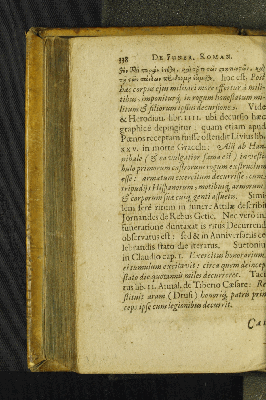 338 DE FUNER. ROMAN.
hoc est: Post
hac corpus ejus militari more effertur à mili-
tibus, imponiturq; in rogum honestatum mi-
litum & filiorum ipsius decursione. Vide
& Herodian. lib. IIII. ubi decursio hæc
graphicè depingitur, quam etiam apud
Pœnos receptam fuisse ostendit Livius l.
XXV. in morte Gracchi: Alij ab Han-
nibale (& ea vulgatior fama est) in vesti-
bulo Punicorum castrorum rogum exstructum
esse: armatum exercitum decurrisse cum
tripudijs Hispanorum; motibusq́; armorum
& corporum suæ cuiq; genti assuetis. Simi-
lem ferè ritum in funere Attilæ describit
Jornandes de Rebus Getic. Nec verò in
funeratione duntaxat is ritus Decurrendi
observatus est: sed & in Anniversariis ce-
lebrandis stato die iteratus. Suetonius
in Claudio cap. I. Exercitus honorarium
ei tumulum excitavit: circa quem deinceps
stato die quotannis miles decurreret. Taci-
tus lib. II. Annal. de Tiberio Cæsare: Re-
stituit aram (Drusi) honoriq́; patris prin-
ceps ipse cum legionibus decurrit.